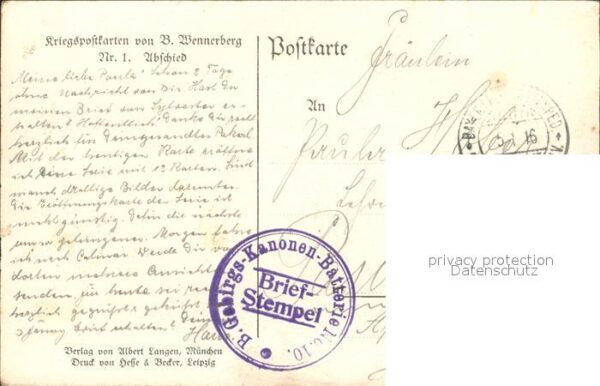 Kriegspostkarten von B. Wennerberg
Nr. 1. Abschied
Meine liebe Paula! Schon 2 Tage
ohne Nachricht von Dir. Hast Du
meinen Brief von Sylvester er-
halten? Hoffentlich! Danke Dir recht
herzlich für Dein gesandtes Paketl.
Mit der heutigen Karte eröffne
ich eine Serie mit 12 Karten. Sind
manch drollige Bilder darunter.
Die Eröffnungskarte der Serie ist
nicht günstig. Dafür die nächste
umso gelungener. Morgen fahre
ich nach Colmar. Werde Dir von
dorten mehrere Ansichten
senden, für heute sei recht
herzlich gegrüßt & geküßt
Brief erhalten?
Hans
Verlag von Albert Langen, München
Druck von Hesse & Becker, Leipzig
Postkarte
Fräulein
An
Paula
B. Gebirgs-Kanonen-Batterie No. 10.
Brief-
Stempel
16
privacy protection
Datenschutz